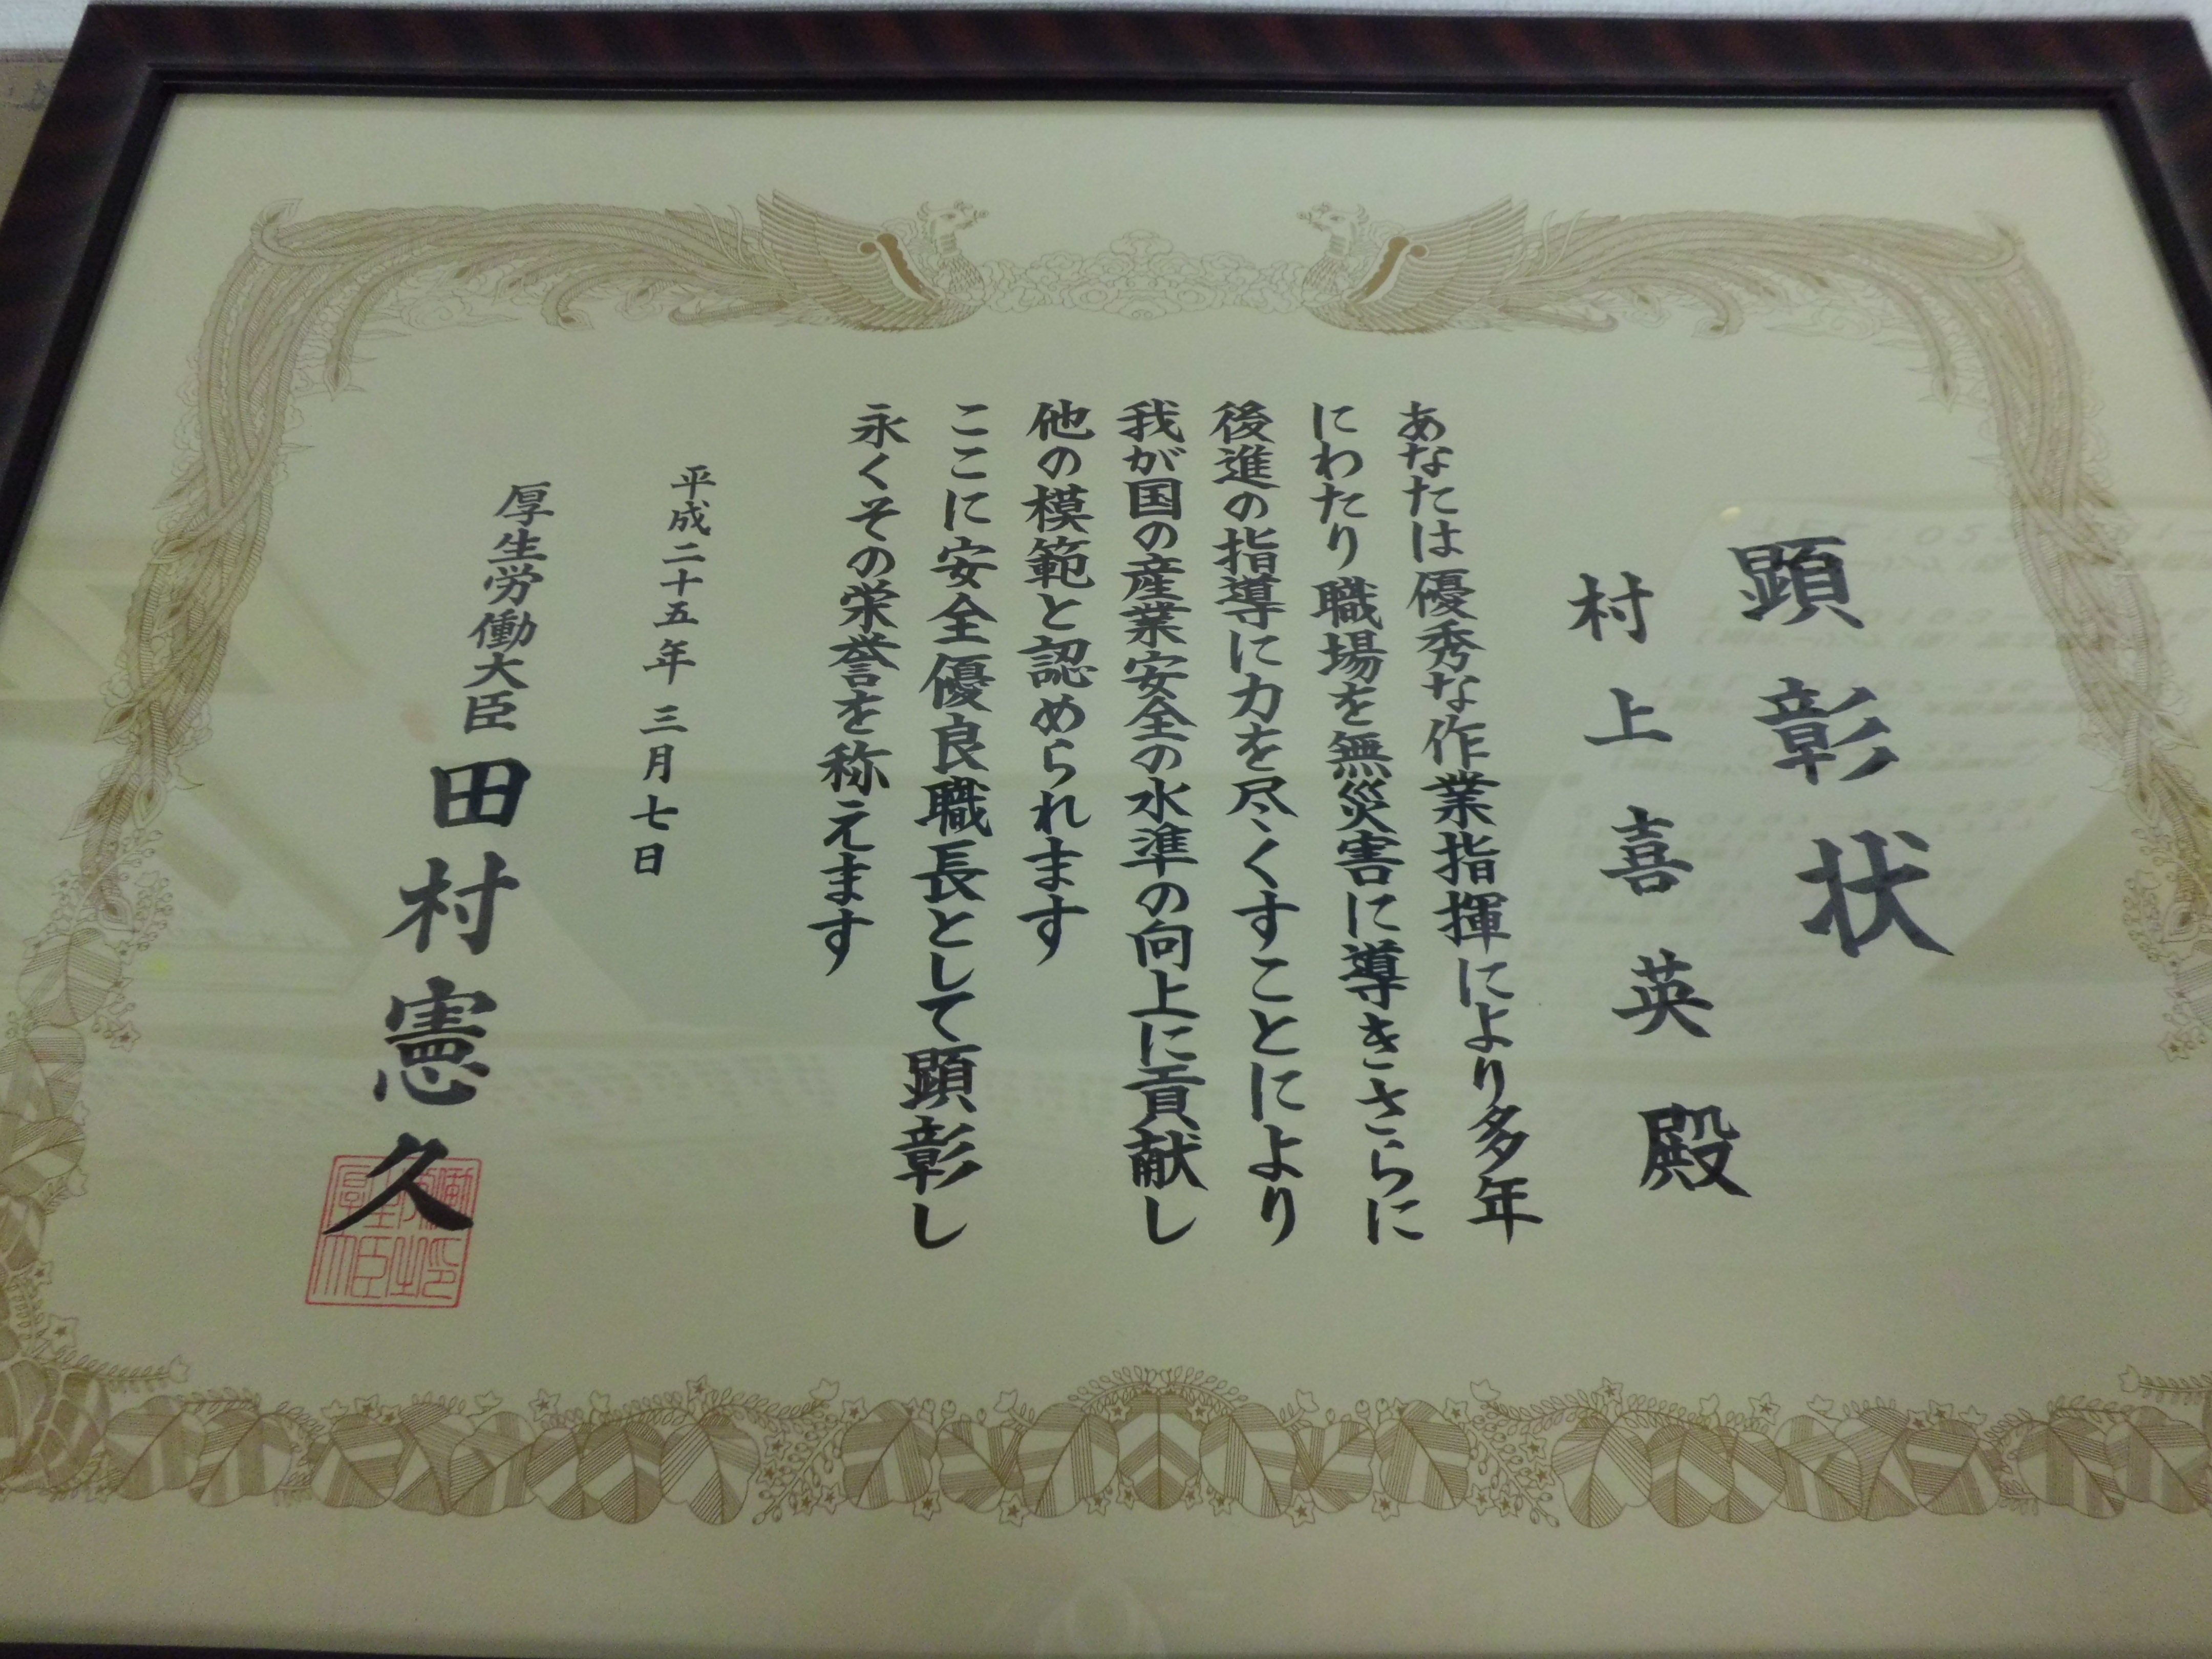 顕彰状
村上喜英殿
あなたは優秀な作業指揮により多年
にわたり職場を無災害に導きさらに
後進の指導に力を尽くすことにより
我が国の産業安全の水準の向上に貢献し
他の模範と認められます
ここに安全優良職長として顕彰し
永くその栄誉を称えます
平成二十五年三月七日
厚生労働大臣田村憲久